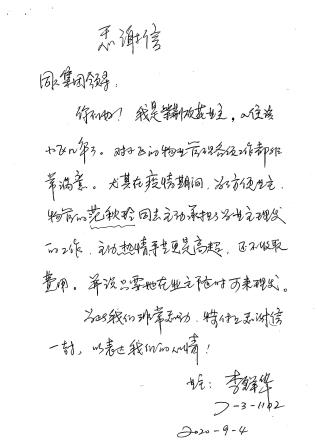 感谢信
同区集团领导:
你们好!我是紫荆花苑业主,入住该
小区几年了。对于区的物业管理各位工作都非
常满意。尤其在疫情期间,为了方便业主,
物管的范秋玲同志主动承担了为业主理发
的工作,主动热情手艺更是高超,还不收取
费用。并说只要她在业主随时可来理发。
为此我们非常感动,特付上感谢信
一封,以表达我们的心情!
业主:李
7-3-1102
2020-9-4